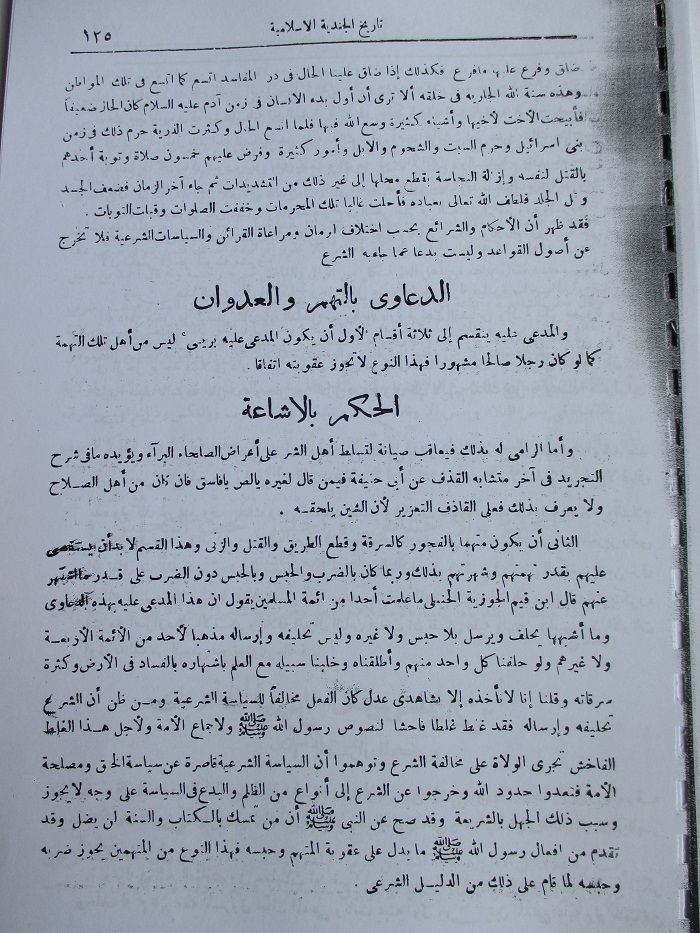 تاريخ الجندية الاسلامية
١٢٥
ضاق وفرع عليها مافرع فكذلك إذا ضاق علينا الحال فى در المفاسد اتسع كما اتسع فى تلك المواطن
وهذه سنة الله الجاريه فى خلقه ألا ترى أن أول بدء الانسان فى زمن آدم عليه السلام كان الحاز ضعيفاً
فأبيحت الأخت لأخيها وأشياء كثيرة وسع الله فيها فلما اتسع الحال وكثرت الذرية حرم ذلك فى زمن
بنى اسرائيل وحرم السبت والشحوم والابل وأمور كثيرة وفرض عليهم خمسون صلاة وتوبة أحدهم
بالقتل لنفسه وإزالة النجاسة بقطع محلها إلى غير ذلك من التشديدات ثم جاء آخر الزمان فضعف الجسد
وقل الجلد فلطف الله تعالى بعباده فأحلت غالبا تلك المحرمات وخففت الصلوات وقبلت التوبات .
فقد ظهر أن الأحكام والشرائع بحسب اختلاف ازمان ومراعاة القرائن والسياسات الشرعية فلا تخرج
عن أصول القواعد وليست بدعا عما جاءبه الشرع
الدعاوى بالتهم والعدوان
والمدعى عليه ينقسم إلى ثلاثة أقسام الأول أن يكون المدعى عليه بريىء ليس من أهل تلك التهمة
كما لو كان رجلا صالحا مشهورا فهذا النوع لاتجوز عقوبته اتفاقا .
الحكم بالاشاعة
وأما الرامى له بذلك فيعاقب صيانة لتسلط أهل الشر على أعراض الصلحاء البرآء ويؤيده مافى شرح
التجريد فى آخر متشابه القذف عن أبى حنيفة فيمن قال لغيره يالص يافاسق فان كان من أهل الصلاح
ولا يعرف بذلك فعلى القاذف التعزير لأن الشين يلحقه .
الثانى أن يكون متهما بالفجور كالسرقة وقطع الطريق والقتل والزنى وهذا القسم لا بد أن يستقصى
عليهم بقدر تهمتهم وشهرتهم بذلك وربما كان بالضرب والحبس وبالحبس دون الضرب على قدر مااشتهر
عنهم قال ابن قيم الجوزية الحنبلى ماعلمت أحدا من ائمة المسلمين يقول ان هذا المدعى عليه بهذه الدعاوى
وما أشبهها يحلف ويرسل بلا حبس ولا غيره وليس تحليفه وإرساله مذهبا لأحد من الأئمة الأربعة
ولا غيرهم ولو حلفنا كل واحد منهم وأطلقناه وخلينا سبيله مع العلم باشتهاره بالفساد فى الأرض وكثرة
سرقاته وقلنا إنا لا نأخذه إلا بشاهدى عدل كان الفعل مخالفاً للسياسة الشرعية ومن ظن أن الشرع
تحليفه وإرساله فقد غلط غلطا فاحشا لنصوص رسول الله ﷺ ولاجماع الأمة ولأجل هذا الغلط
الفاخش تجرى الولاة على مخالفة الشرع وتوهموا أن السياسة الشرعية قاصرة عن سياسة الحق ومصلحة
الأمة فتعدوا حدود الله وخرجوا عن الشرع إلى أنواع من الظلم والبدع فى السياسة على وجه لايجوز
وسبب ذلك الجهل بالشريعة وقد صح عن النبى ﷺ أن من تمسك بالكتاب والسنة لن يضل وقد
تقدم من افعال رسول الله ﷺ ما يدل على عقوبة المتهم وحبسه فهذا النوع من المتهمين يجوز ضربه
وحبسه لما قام على ذلك من الدليل الشرعى .